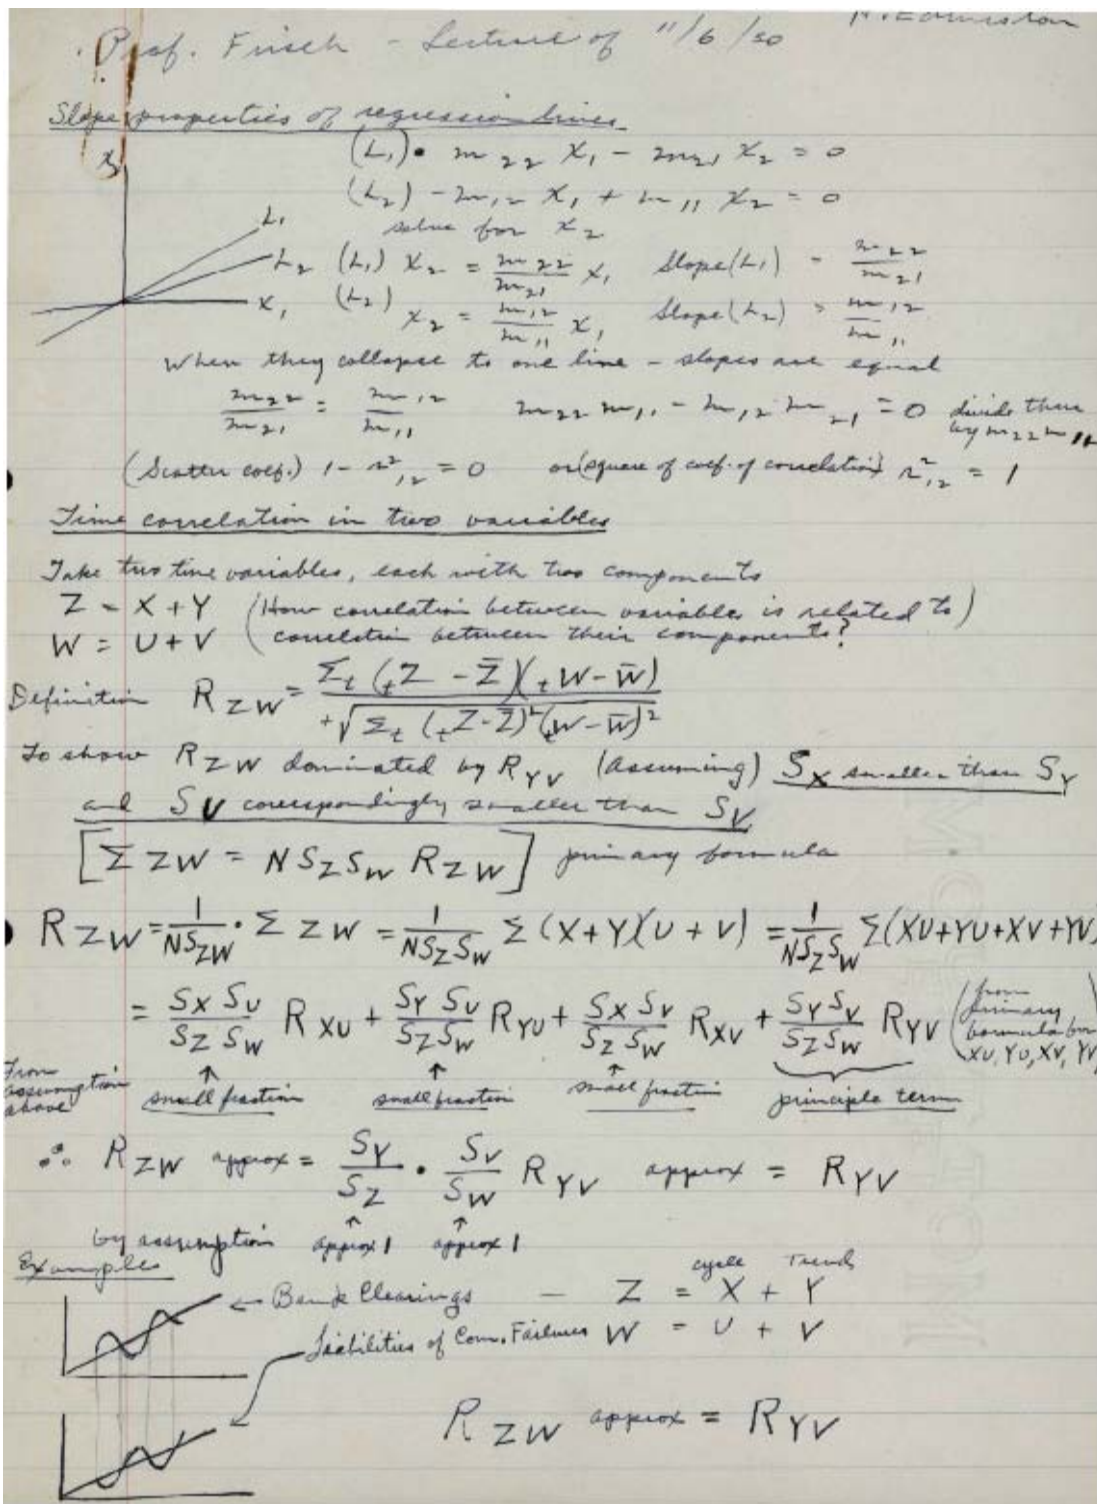 Prof. Frisch - Lecture of 11/6/30
Slope properties of regression lines
(L₁) • m₂₂ X₁ - m₂₁ X₂ = 0
(L₂) - m₁₂ X₁ + m₁₁ X₂ = 0
solve for X₂
L₁
L₂ (L₁) X₂ = m₂₂/m₂₁ X₁ Slope (L₁) = m₂₂/m₂₁
X₁ (L₂) X₂ = m₁₂/m₁₁ X₁ Slope (L₂) = m₁₂/m₁₁
When they collapse to one line - slopes are equal
m₂₂/m₂₁ = m₁₂/m₁₁ m₂₂ m₁₁ - m₁₂ m₂₁ = 0 divide thru by m₂₂ m₁₁
(Scatter coef.) 1 - r²₁₂ = 0 or (square of coef. of correlation) r²₁₂ = 1
Time correlation in two variables
Take two time variables, each with two components
Z = X + Y (How correlation between variable is related to)
W = U + V (correlation between their components?
Definition R_ZW = Σₜ (ₜZ - Z̄)(ₜW - W̄) / +√Σₜ (ₜZ - Z̄)² (ₜW - W̄)²
To show R_ZW dominated by R_YV (Assuming) S_X smaller than S_Y
and S_U correspondingly smaller than S_V
[Σ ZW = N S_Z S_W R_ZW] primary formula
R_ZW = 1/NS_ZW • Σ ZW = 1/NS_Z S_W Σ (X+Y)(U+V) = 1/NS_Z S_W Σ(XU+YU+XV+YV)
= S_X S_U/S_Z S_W R_XU + S_Y S_U/S_Z S_W R_YU + S_X S_V/S_Z S_W R_XV + S_Y S_V/S_Z S_W R_YV (from primary formula for XU, YU, XV, YV)
From assumption above ↑ small fraction ↑ small fraction ↑ small fraction principle term
∴ R_ZW approx = S_Y/S_Z • S_V/S_W R_YV approx = R_YV
by assumption ↑ approx 1 ↑ approx 1
Examples
cycle Trend
← Bank Clearings - Z = X + Y
Liabilities of Com. Failures W = U + V
R_ZW approx = R_YV